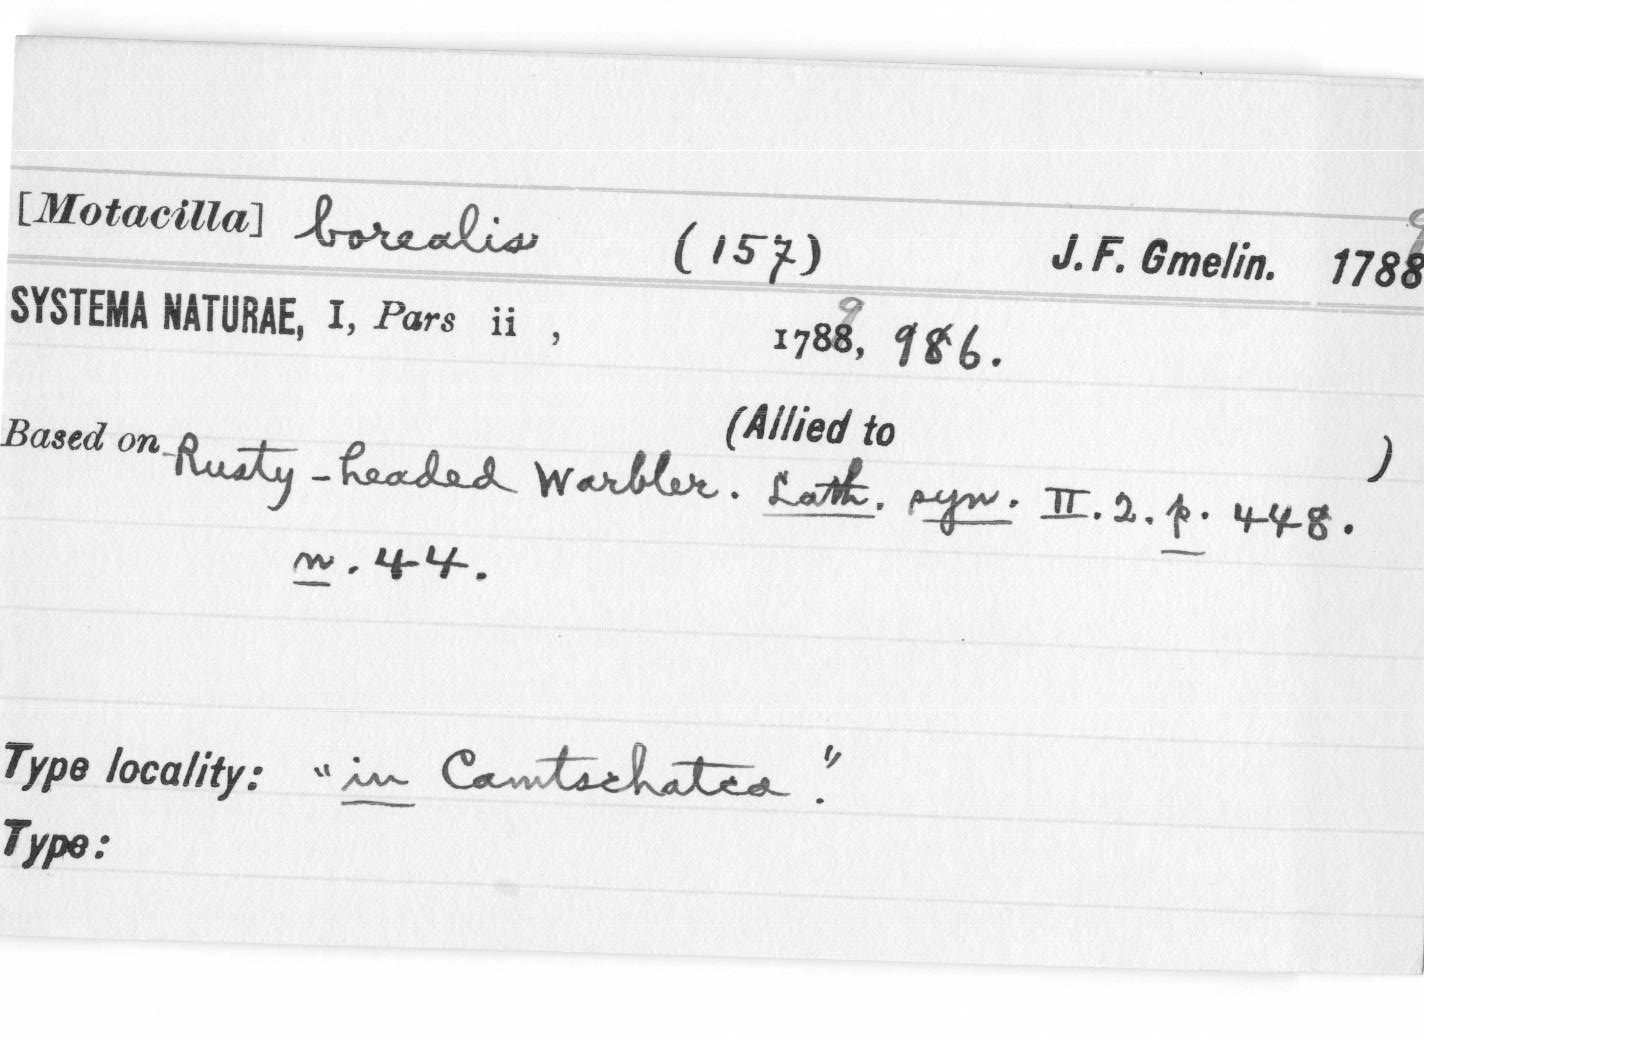 [Motacilla] borealis (157) J. F. Gmelin. 1788 9
SYSTEMA NATURAE, I, Pars ii , 1788, 9 986.
(Allied to )
Based on Rusty-headed Warbler. Lath. syn. II. 2. p. 448.
n. 44.
Type locality: "in Camtschatca."
Type: